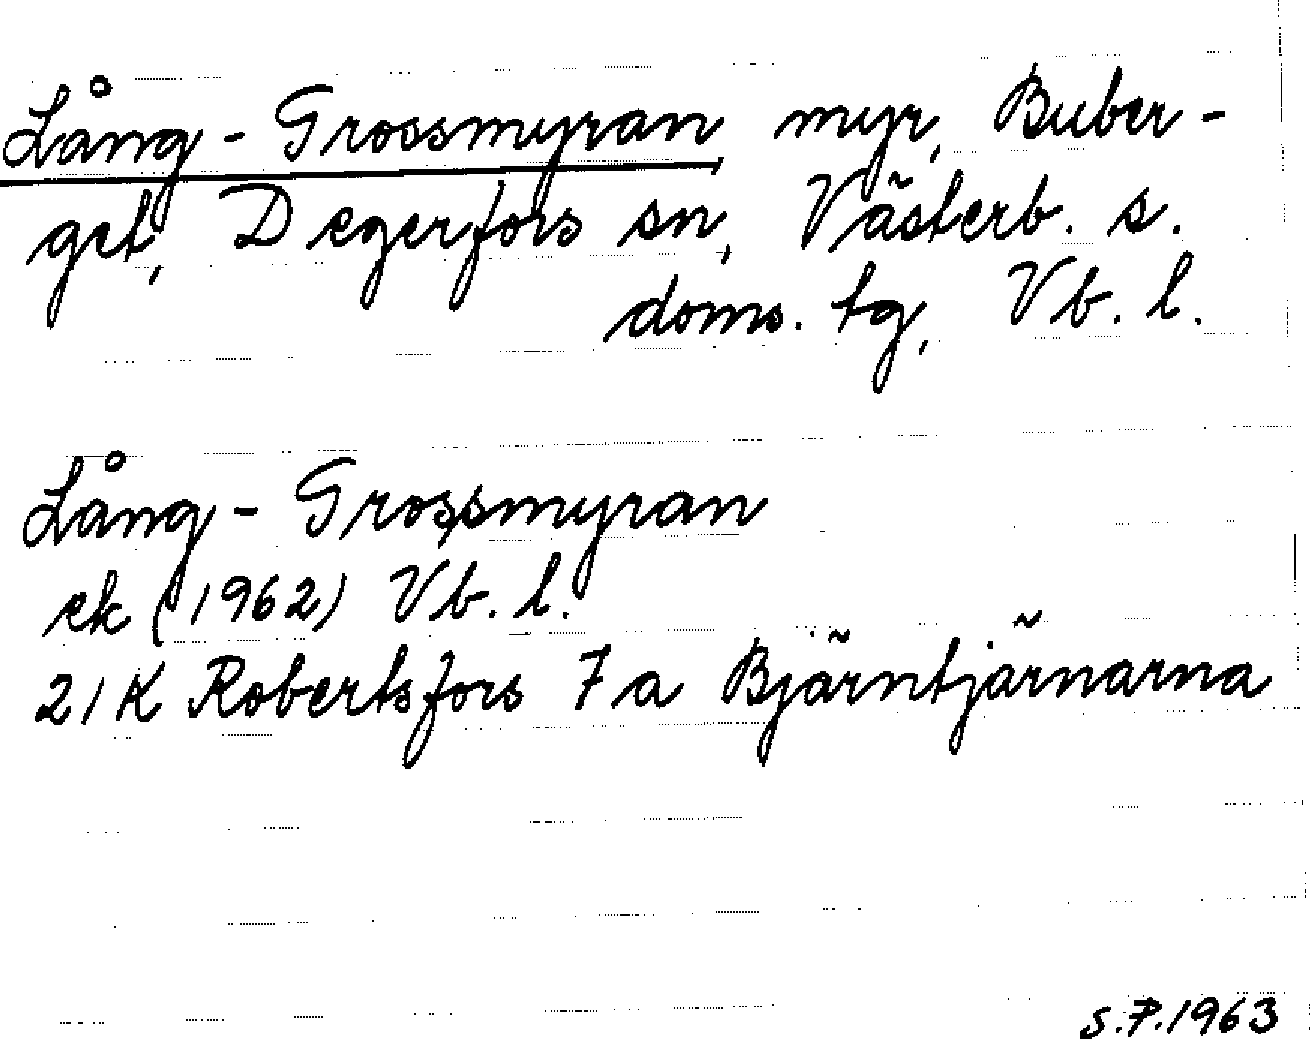 Lång-Grossmyran myr, Buber-
get, Degerfors sn, Västerb. s.
doms. tg, Vb. l.
Lång-Grossmyran
ek (1962) Vb. l.
21K Robertsfors 7a Bjärntjärnarna
s.7.1963